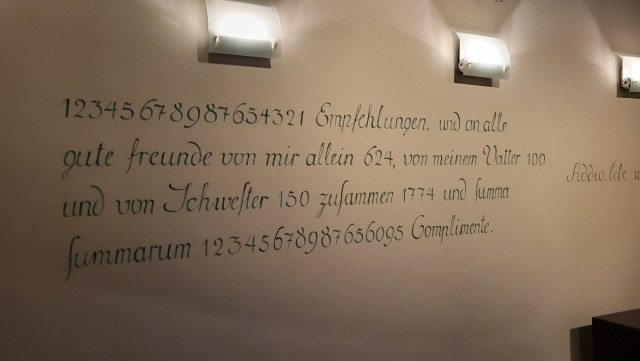 12345678987654321 Empfehlungen, und an alle
gute freunde von mir allein 624, von meinem Vatter 100
und von Schweſter 150 zuſammen 1774 und ſumma
ſummarum 12345678987656095 Complimente.
Addio. lebe